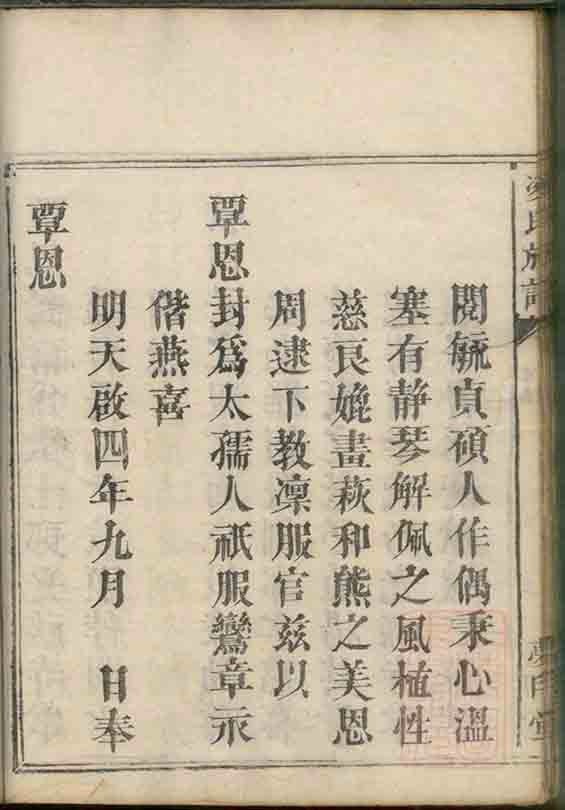 閱毓貞碩人作偶秉心溫
塞有静琴解佩之風植性
慈良媲畫萩和熊之美恩
周逮下教凛服官兹以
覃恩封爲太孺人祇服鸞章永
偕燕喜
明天啟四年九月 日奉
覃恩